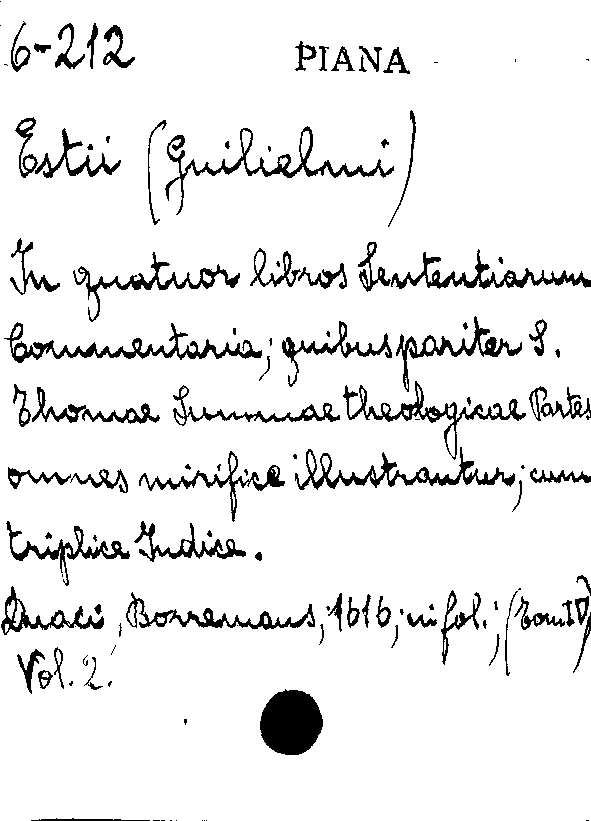 6-212 PIANA
Estii (Guilielmi)
In quatuor libros Sententiarum
Commentaria; quibus pariter S.
Thomae Summae theologicae Partes
omnes mirifice illustrantur; cum
triplice Indice.
Duaci, Borremans, 1616; in fol.; (Tom. IV)
Vol. 2.